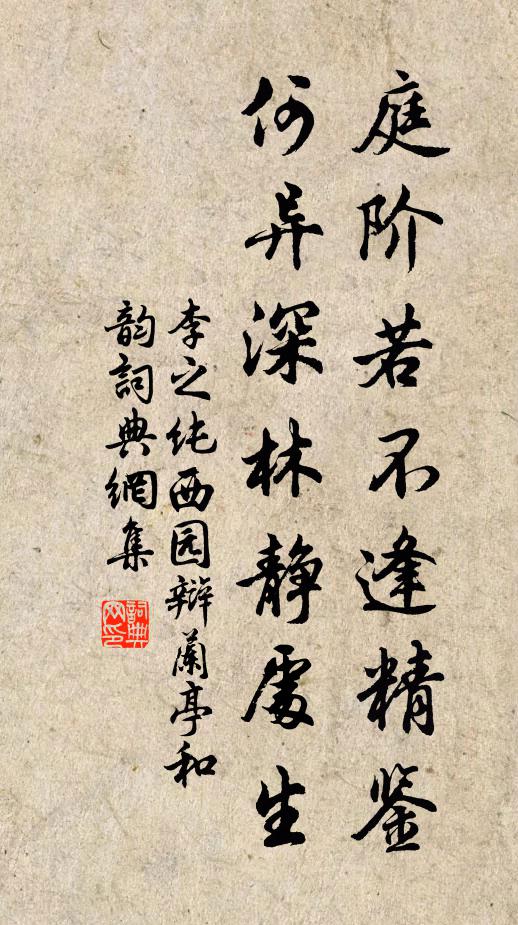 庭阶若不逢精鉴
何异深林静處生
李之纯西园辩蘭亭和
韵詞典網集
詞典
网印